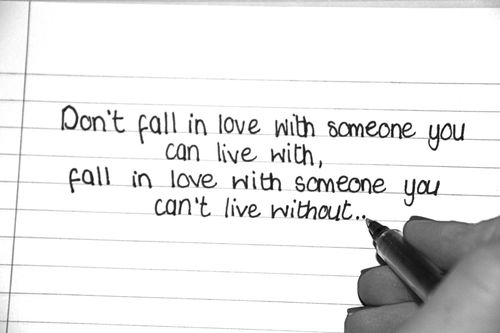 Don't fall in love with someone you
can live with,
fall in love with someone you
can't live without..